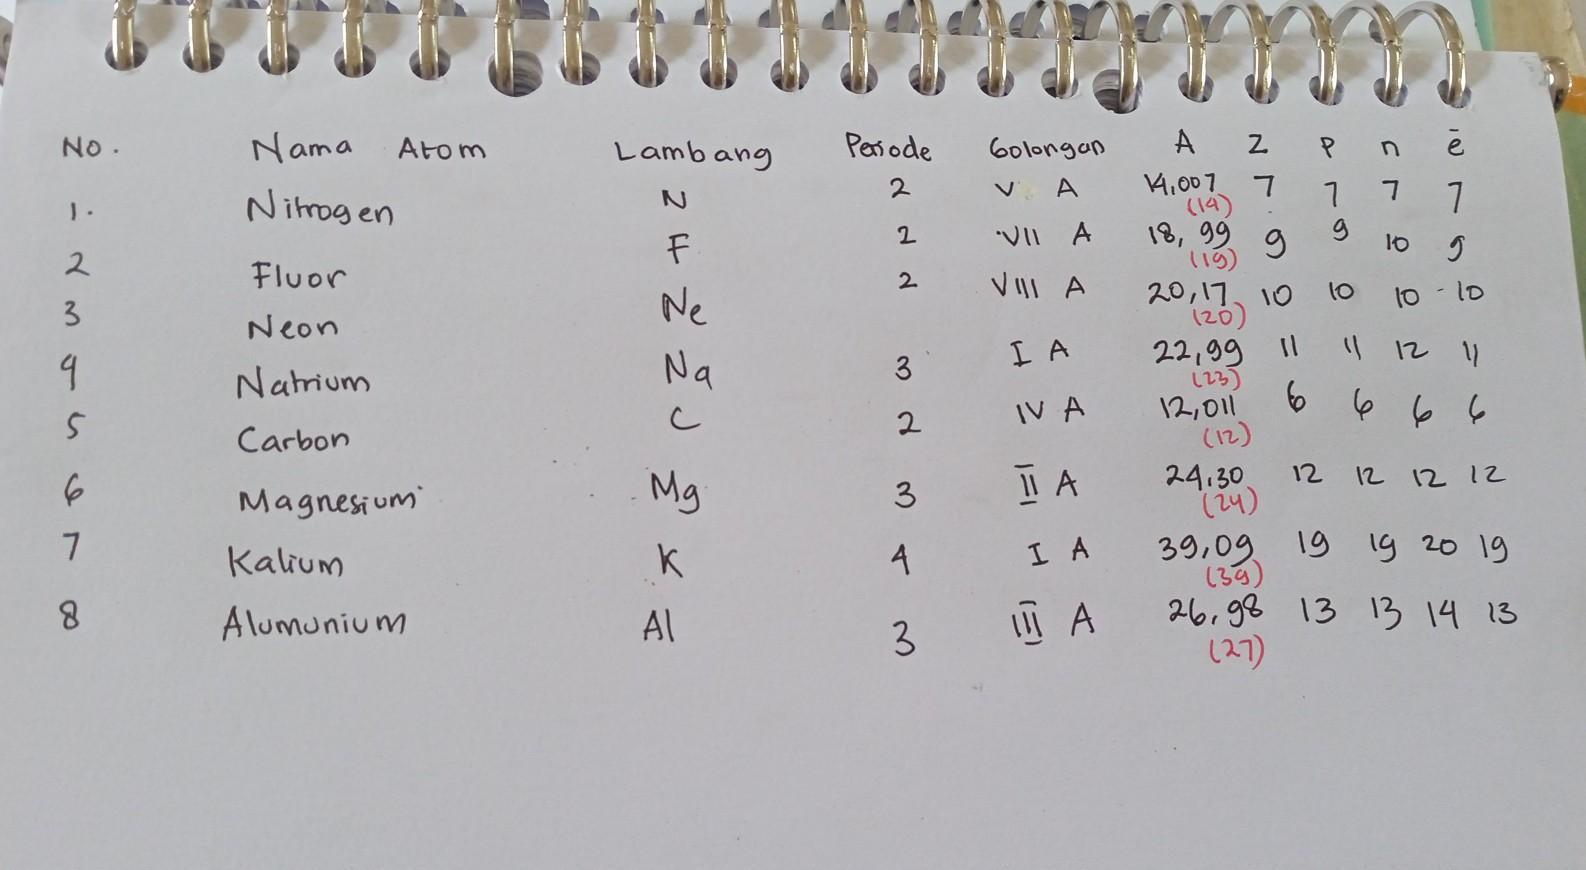 No. Nama Atom Lambang Periode Golongan A Z p n ē
1. Nitrogen N 2 V A 14,007 7 7 7 7
(14)
2 Fluor F 2 VII A 18,99 9 9 10 9
(19)
3 Neon Ne 2 VIII A 20,17 10 10 10 10
(20)
4 Natrium Na 3 I A 22,99 11 11 12 11
(23)
5 Carbon C 2 IV A 12,011 6 6 6 6
(12)
6 Magnesium Mg 3 II A 24,30 12 12 12 12
(24)
7 Kalium K 4 I A 39,09 19 19 20 19
(39)
8 Alumunium Al 3 III A 26,98 13 13 14 13
(27)